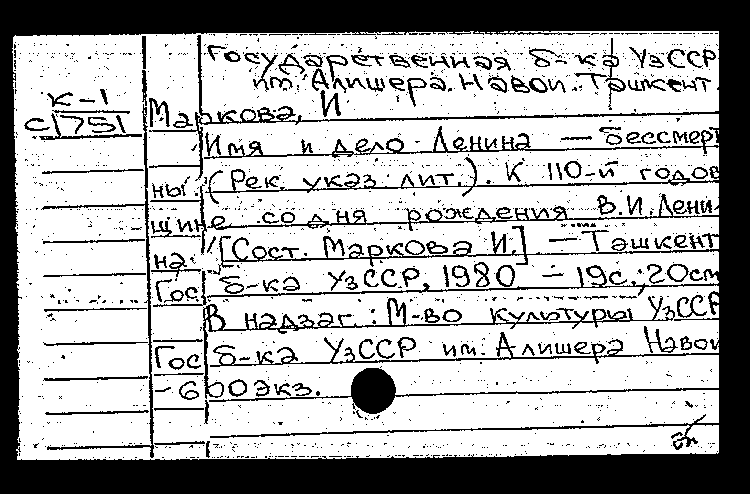 Государственная б-ка УзССР
им. Алишера. Навои. Ташкент.
К-1
с1751
Маркова, И
Имя и дело Ленина — бессмерт
ны (Рек. указ. лит.). К 110-й годов
щине со дня рождения В.И. Лени-
на. [Сост. Маркова И.] — Ташкент
Гос б-ка УзССР, 1980 — 19с.; 20см
В надзаг.: М-во культуры УзССР
Гос б-ка УзССР им. Алишера Навои
- 600экз.